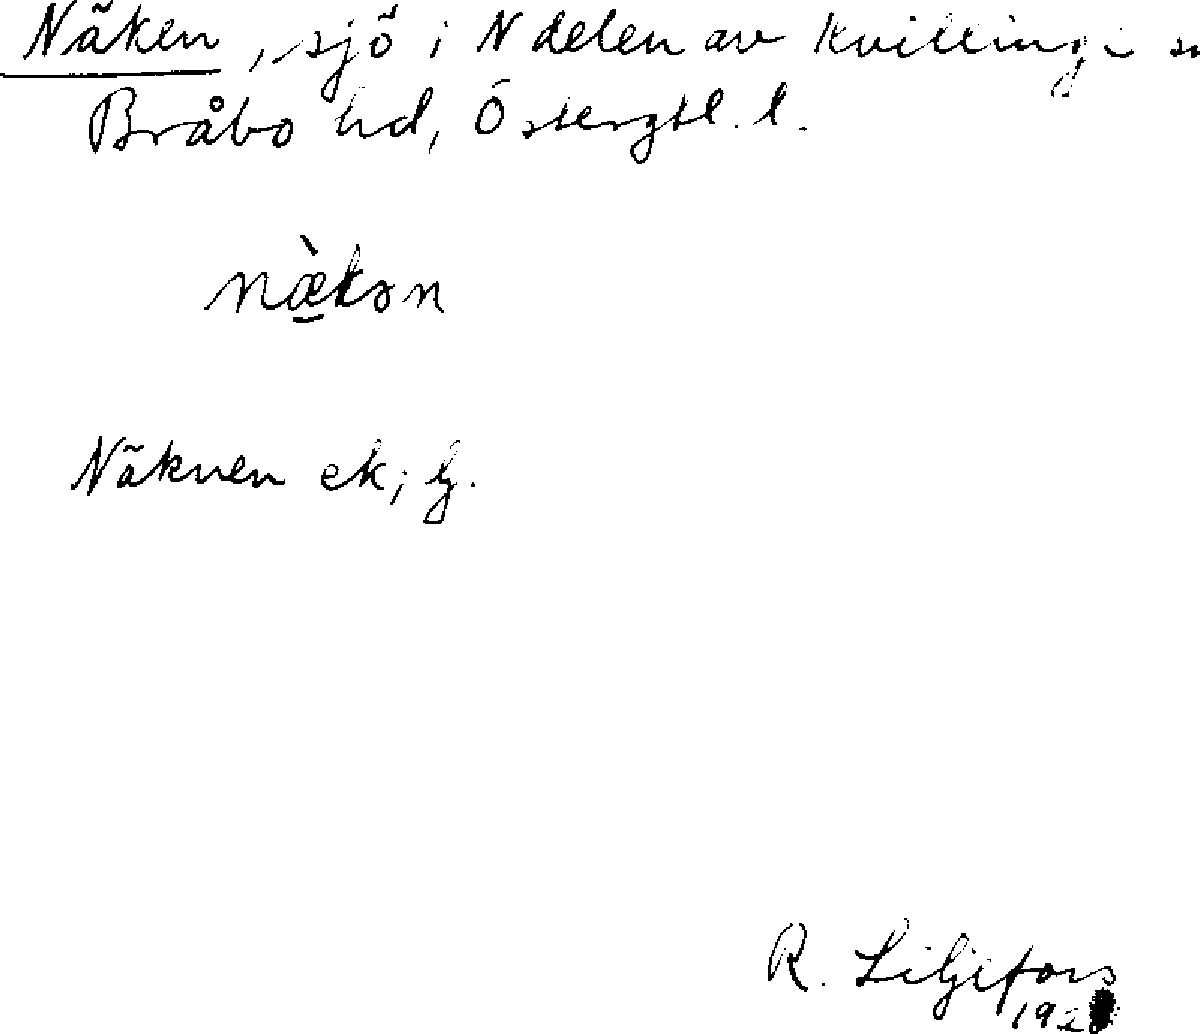 Näken, sjö i N delen av Kvillinge sn
Bråbo hd, Östergtl. l.
næ̀kən
Näknen ek;
R. Liljefors